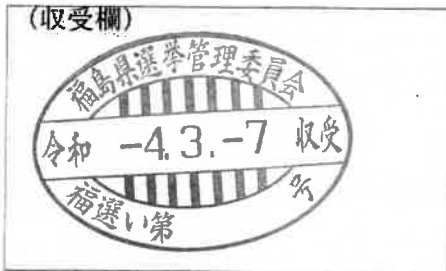 (収受欄)
福島県選挙管理委員会
令和 -4.3.-7 収受
福選い第 号